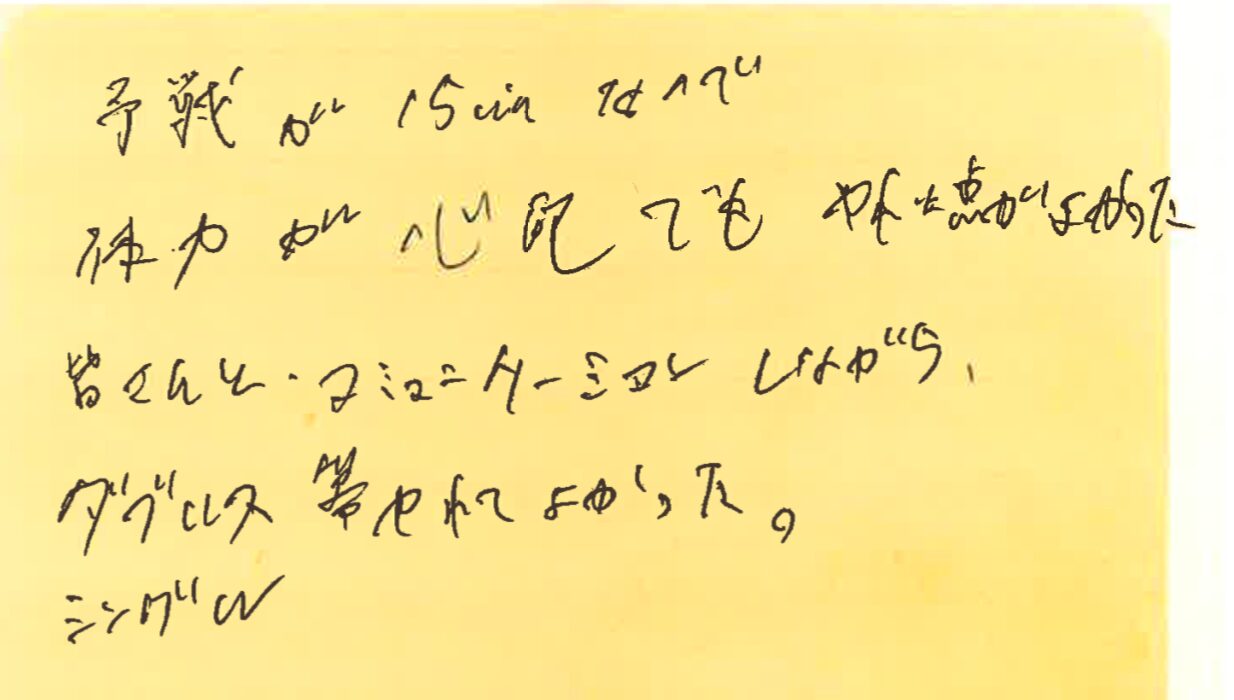 予戦が 15min なので
体力が心配でも やれた点がよかった
皆さんと・コミュニケーションしながら、
ダブルス 等やれてよかった。
シングル